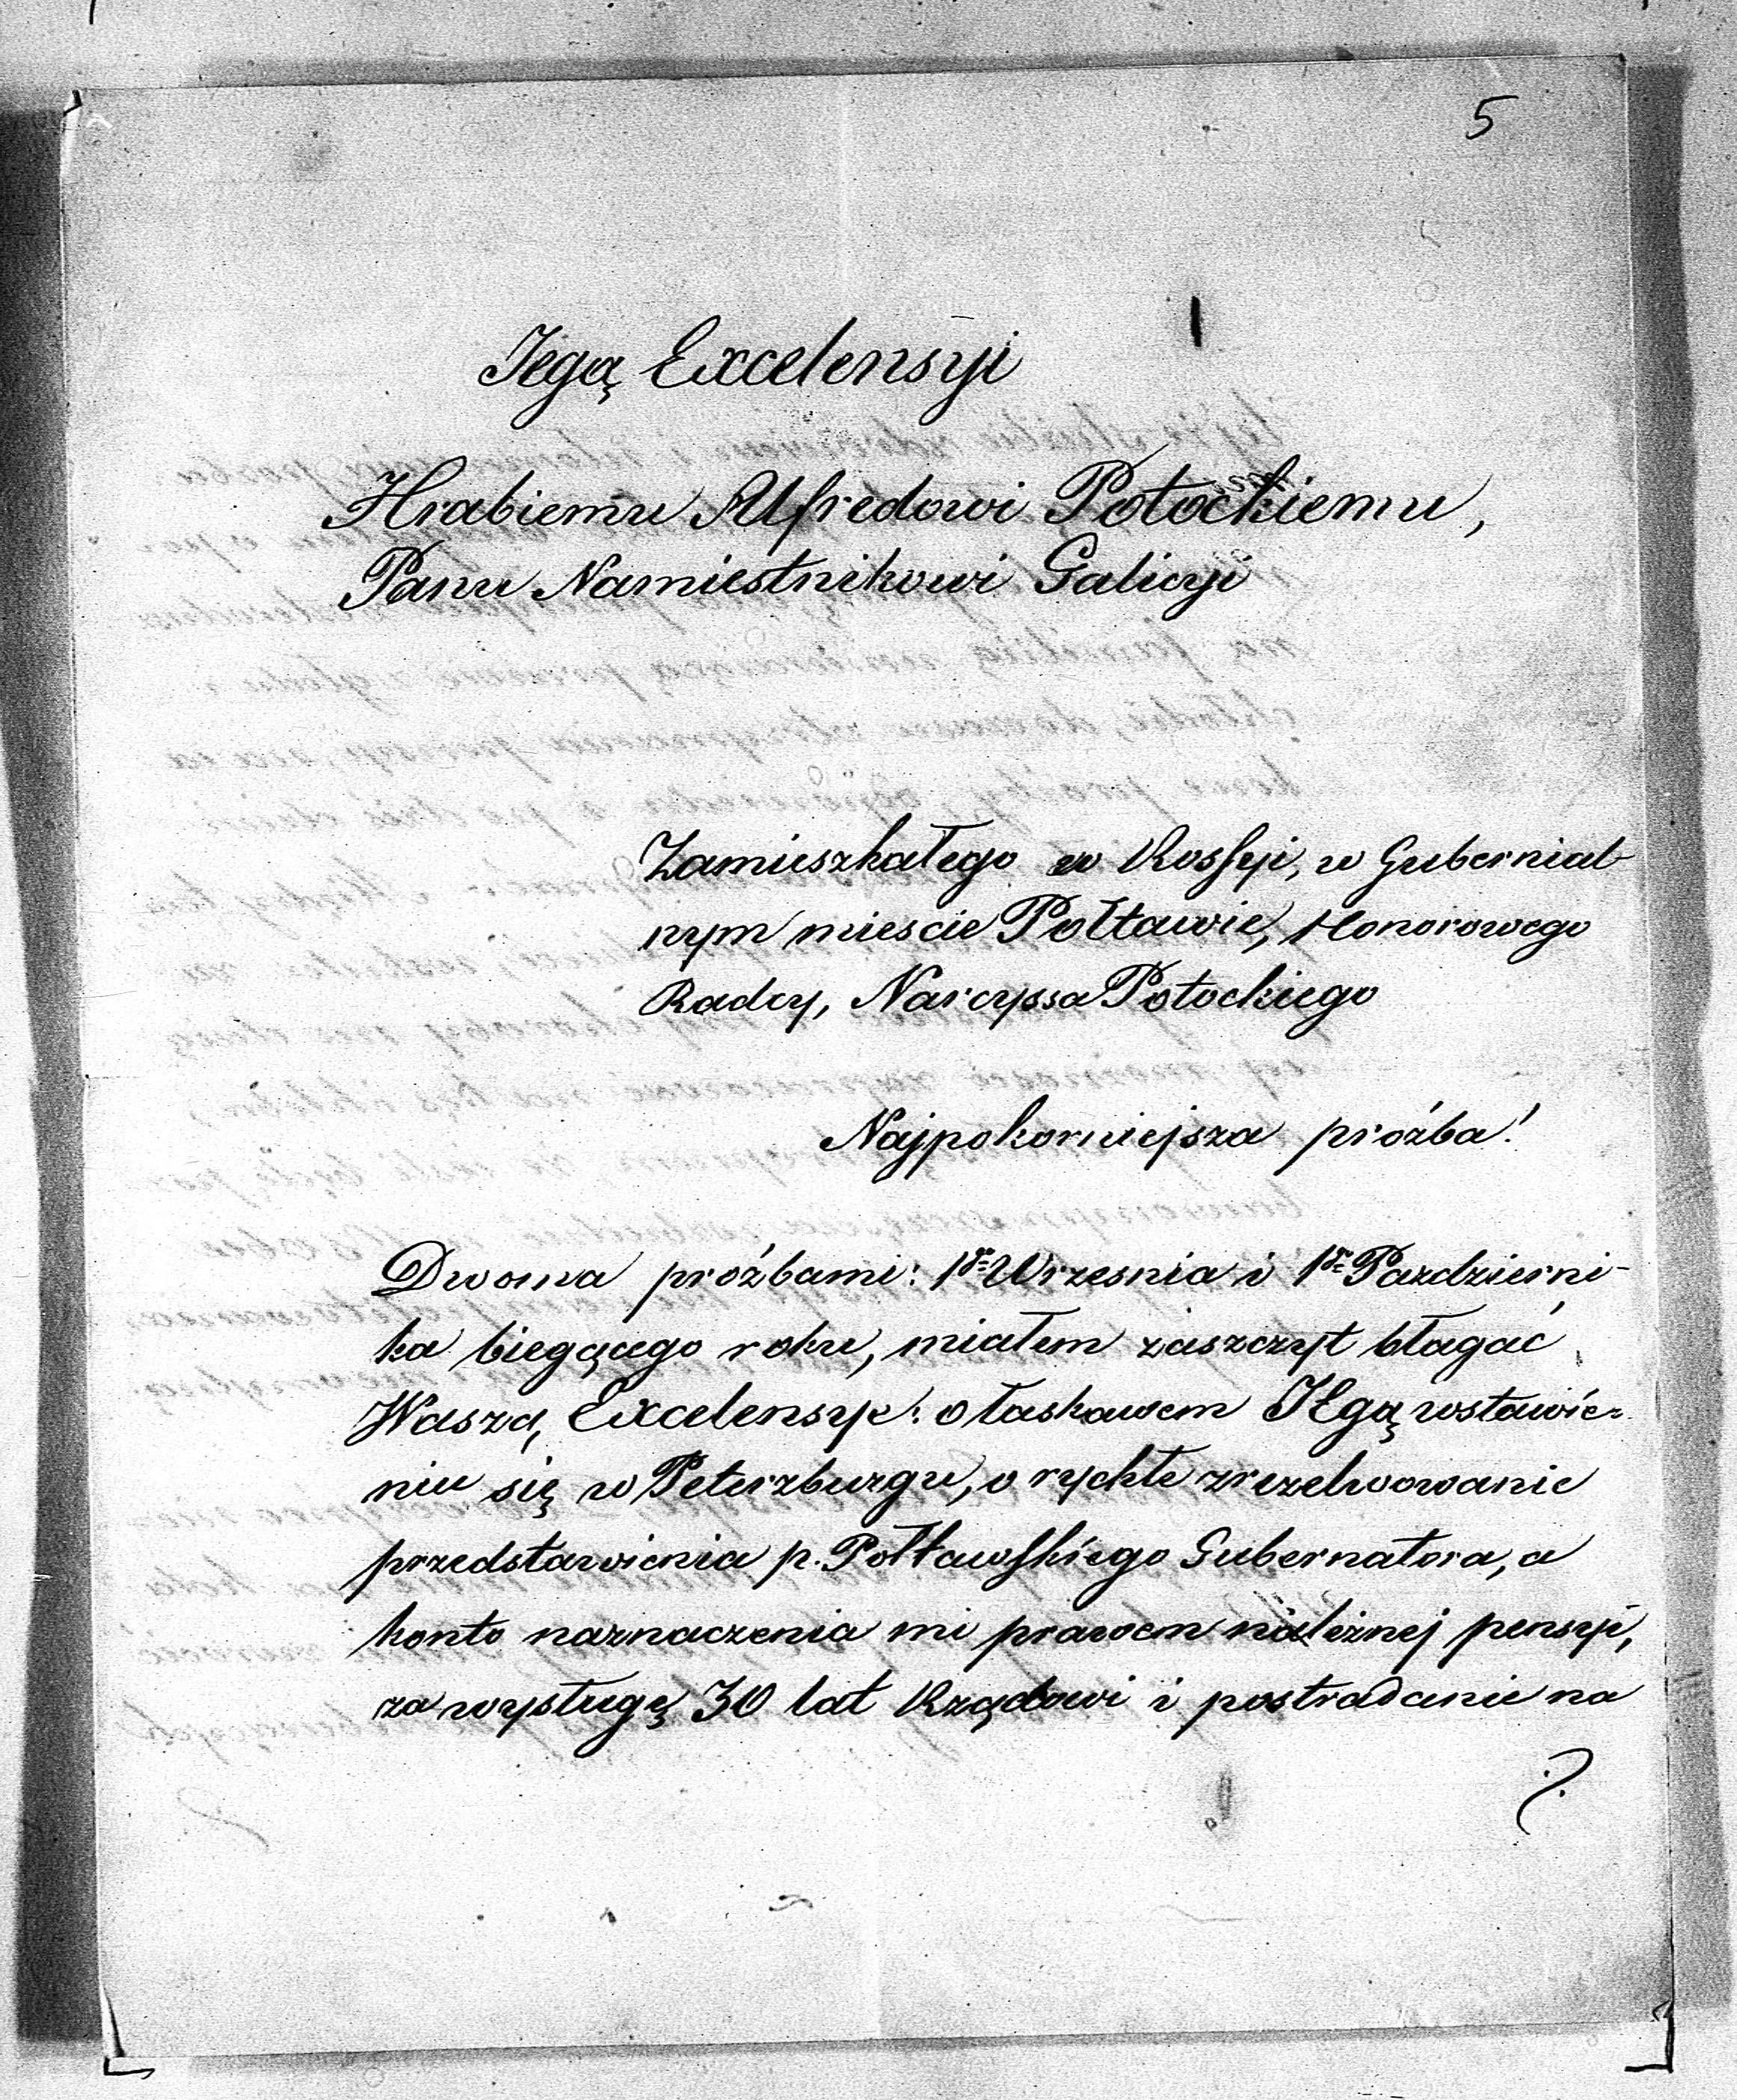 5
Jegą Excelensyi
Hrabiemu Alfredowi Potockiemu,
Panu Namiestnikowi Galicyi
Zamieszkałego w Rossyi, w Gubernial-
nym miescie Połtawie, Honorowego
Radcy, Narcyssa Potockiego
Najpokorniejsza proźba!
Dwoma proźbami: 1go Wrzesnia i 1go Pazdzierni-
ka biegącego roku, miałem zaszczyt błagać
Waszą Excelensye: o łaskawem Jegą wstawie-
niu się w Peterzburgu, o rychłe zrezelwowanie
przedstawienia p. Połtawskiego Gubernatora, a
konto naznaczenia mi prawem należnej pensyi,
za wysługę 30 lat Rządowi i postradanie na